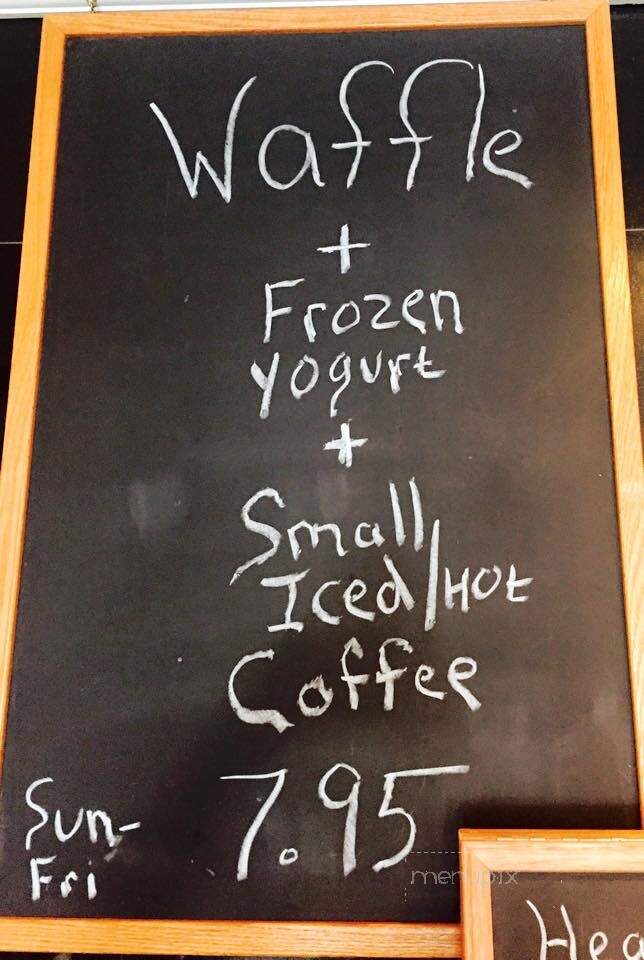 Waffle
+
Frozen
yogurt
+
Small
Iced/Hot
Coffee
7.95
Sun-
Fri
menupix